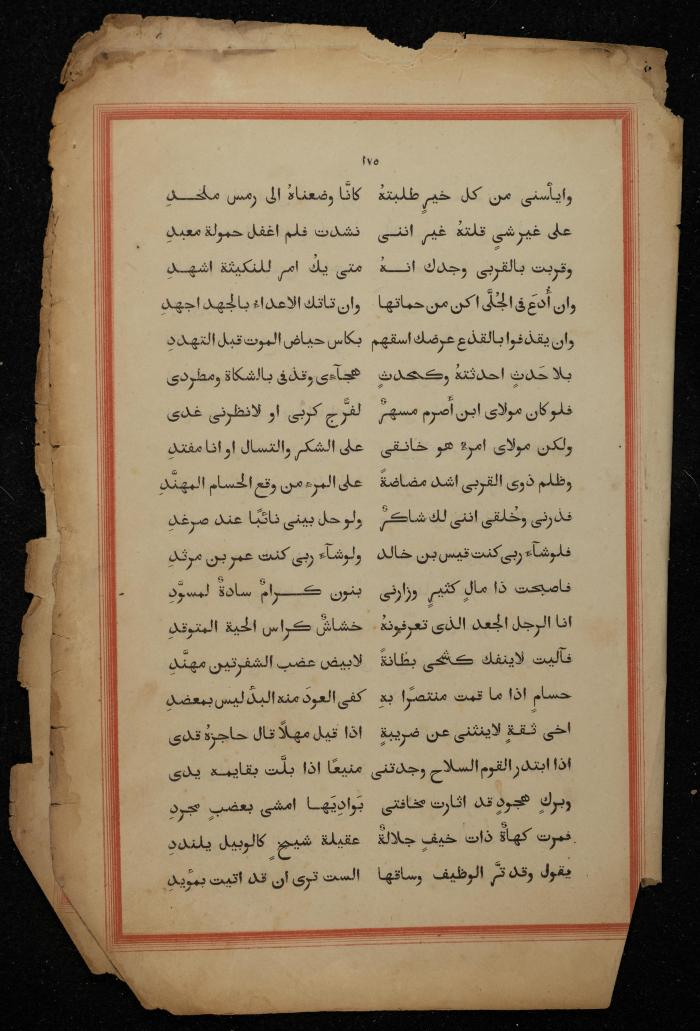 ١٧٥
وايأسنى من كل خيرٍ طلبتهُ كانَّا وضعناهُ الى رمس ملحـــد
على غير شىٍ قلتهُ غير اننـى نشدت فلم اغفل حمولة معبدِ
وقربت بالقربى وجدك انــهُ متى يكُ امر للنكيثة اشهــدِ
وان أُدعَ فى الجُلَّى اكن من حماتها وان تاتك الاعداءُ بالجهد اجهدِ
وان يقذفوا بالقذع عرضك اسقهم بكاس حياض الموت قبل التهددِ
بلا حَدثٍ احدثتهُ وكمحدثٍ هجآءى وقذفى بالشكاة ومطردى
فلو كان مولاى ابن أصرم مسهرٌ لفرَّج كربى او لانظرنى غدى
ولكن مولاى امرءٌ هو خانـقى على الشكر والتسال او انا مفتدِ
وظلم ذوى القربى اشد مضاضةً على المرء من وقع الحسام المهنَّدِ
فذرنى وخُلقى اننى لك شاكرٌ ولو حل بينى نائبًا عند ضرغدِ
فلو شآء ربى كنت قيس بن خالد ولو شآء ربى كنت عمر بن مرثدِ
فاصبحت ذا مالٍ كثيرٍ وزارنى بنون كـــرامٌ سادةٌ لمسوَّدِ
انا الرجل الجعد الذى تعرفونهُ خشاشٌ كراس الحية المتوقدِ
فآليت لاينفك كشحى بطانةً لابيض عضب الشفرتين مهنَّدِ
حسامٍ اذا ما قمت منتصرًا بهِ كفى العودَ منه البدأُ ليس بمعضدِ
اخى ثـقـةٍ لاينثنى عن ضريبةٍ اذا قيل مهلًا قال حاجزهُ قدى
اذا ابتدر القوم السلاح وجدتنى منيعًا اذا بلَّت بقايمـه يدى
وبركٍ هجودٍ قد اثارت مخافتى بَوادِيَهـا امشى بعضبٍ مجردِ
فمرت كهاةٌ ذات خيفٍ جلالةٌ عقيلة شيخٍ كالوبيل يلنددِ
يقول وقد ترَّ الوظيف وساقها الست ترى ان قد اتيت بمؤيدِ